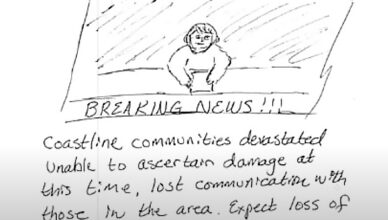 BREAKING NEWS!!!
Coastline communities devastated
Unable to ascertain damage at
this time, lost communication with
those in the area. Expect loss of